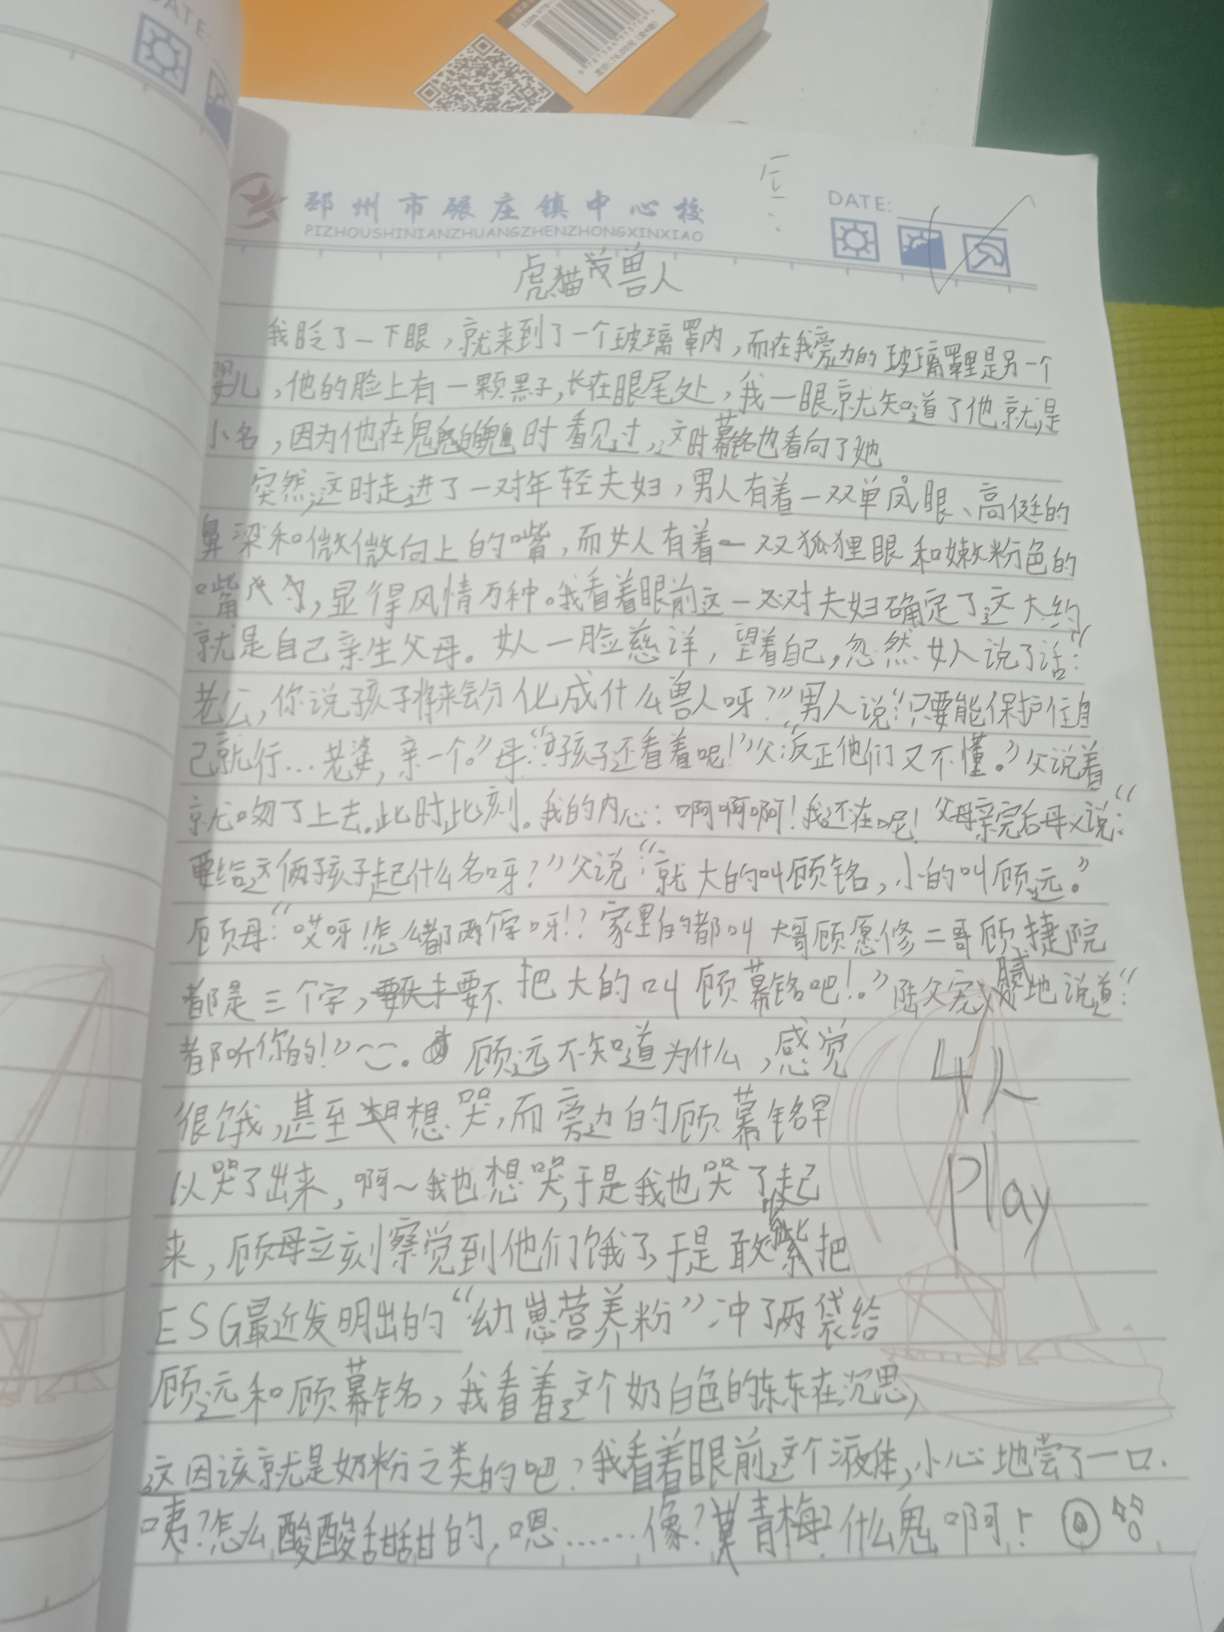 DATE:
邳州市碾庄镇中心校
PIZHOUSHINIANZHUANGZHENZHONGXINXIAO
DATE:
虎猫兽人
我眨了一下眼，就来到了一个玻璃罩内，而在我旁边的玻璃罩里是另一个
婴儿，他的脸上有一颗黑子，长在眼尾处，我一眼就知道了他就是
小名，因为他在鬼魂时看见过，这时幕铭也看向了她
突然，这时走进了一对年轻夫妇，男人有着一双单凤眼、高挺的
鼻梁和微微向上的嘴，而女人有着一双狐狸眼和嫩粉色的
嘴，显得风情万种。我看着眼前这一对夫妇确定了这大约
就是自己亲生父母。女人一脸慈详，望着自己，忽然女人说了话：“
老公，你说孩子将来会分化成什么兽人呀？”男人说：“只要能保护住自
己就行…老婆，亲一个。”母：“好孩子还看着呢！”父：“反正他们又不懂。”父说着
就吻了上去。此时此刻。我的内心：啊啊啊！我还在呢！父母亲完后母又说：“
要给这俩孩子起什么名呀？”父说：“就大的叫顾铭，小的叫顾远。”
顾母：“哎呀！怎么都两个字呀！？家里的都叫大哥顾愿修二哥顾捷院
都是三个字，要不把大的叫顾幕铭吧！。”陆父宠溺地说道：“
都听你的！”。顾远不知道为什么，感觉
很饿，甚至想哭，而旁边的顾幕铭早
以哭了出来，啊~我也想哭，于是我也哭了起
来，顾母立刻察觉到他们饿了，于是敢紧把
ESG最近发明出的“幼崽营养粉”冲了两袋给
顾远和顾幕铭，我看着这个奶白色的东东在沉思，
这因该就是奶粉之类的吧？我看着眼前这个液体，小心地尝了一口.
咦？怎么酸酸甜甜的，嗯……像？青梅？什么鬼啊！
4人
Play